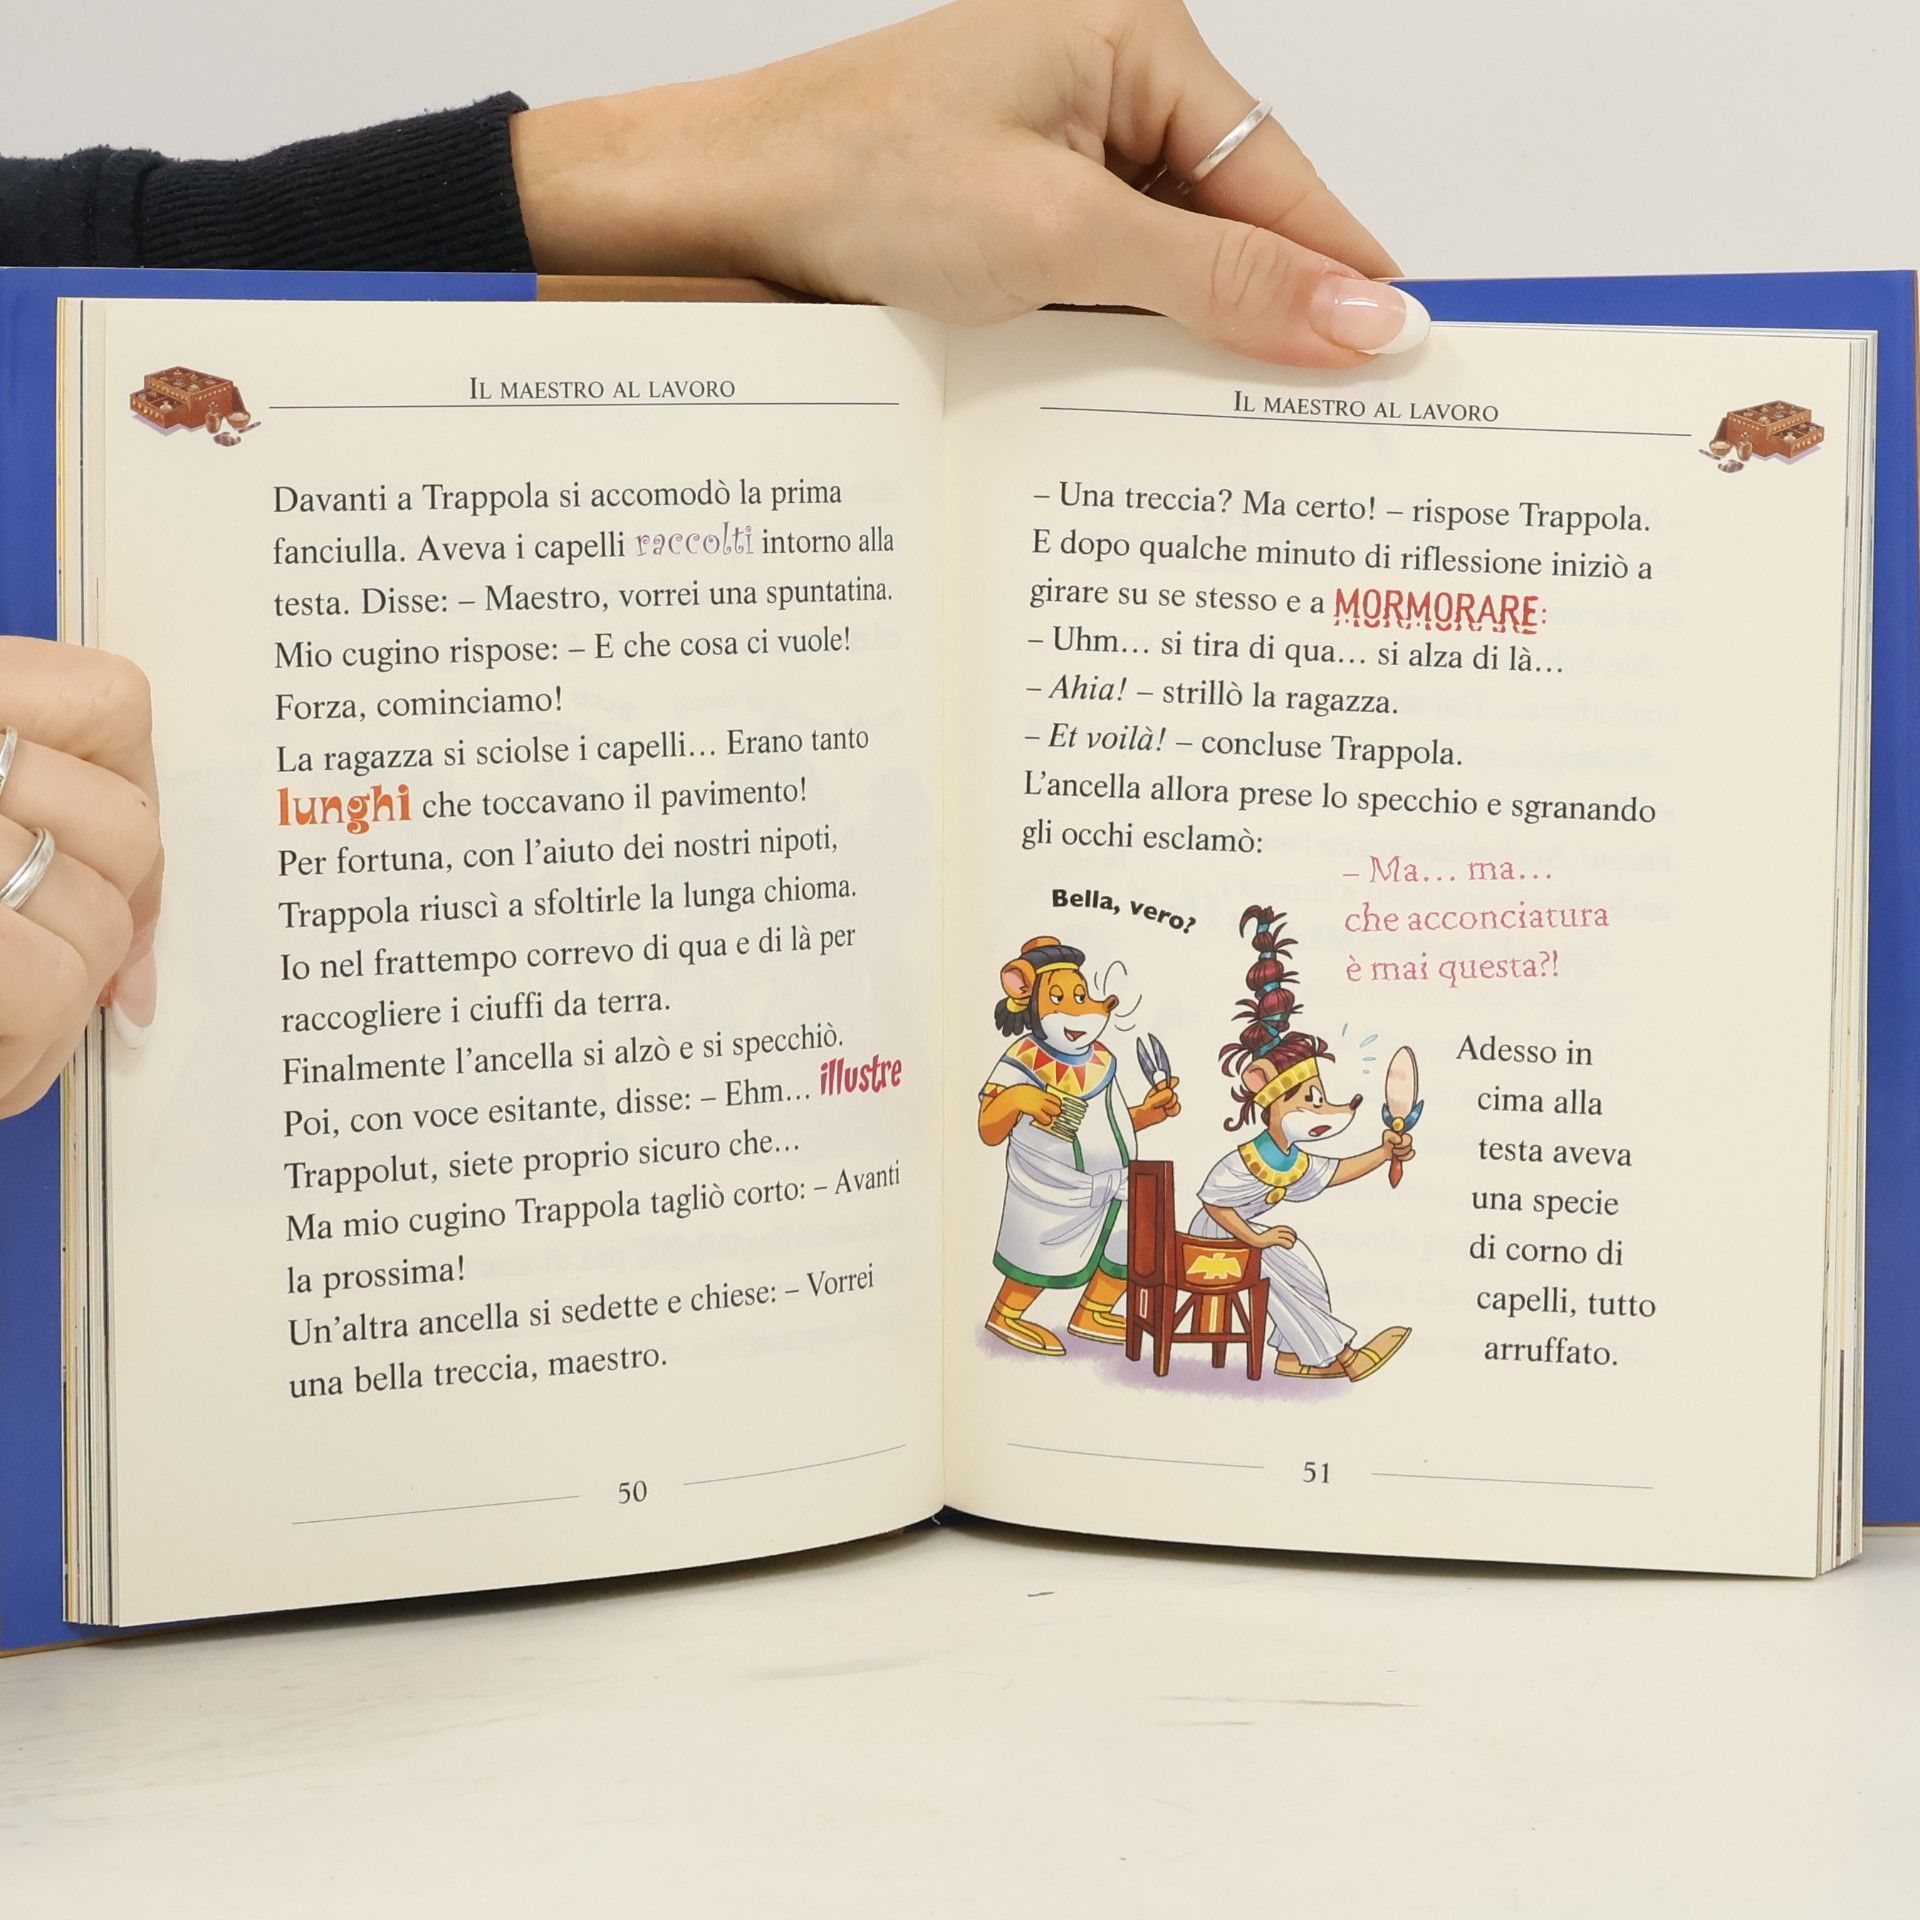 IL MAESTRO AL LAVORO
Davanti a Trappola si accomodò la prima
fanciulla. Aveva i capelli raccolti intorno alla
testa. Disse: – Maestro, vorrei una spuntatina.
Mio cugino rispose: – E che cosa ci vuole!
Forza, cominciamo!
La ragazza si sciolse i capelli… Erano tanto
lunghi che toccavano il pavimento!
Per fortuna, con l’aiuto dei nostri nipoti,
Trappola riuscì a sfoltirle la lunga chioma.
Io nel frattempo correvo di qua e di là per
raccogliere i ciuffi da terra.
Finalmente l’ancella si alzò e si specchiò.
Poi, con voce esitante, disse: – Ehm… illustre
Trappolut, siete proprio sicuro che…
Ma mio cugino Trappola tagliò corto: – Avanti
la prossima!
Un’altra ancella si sedette e chiese: – Vorrei
una bella treccia, maestro.
50
IL MAESTRO AL LAVORO
– Una treccia? Ma certo! – rispose Trappola.
E dopo qualche minuto di riflessione iniziò a
girare su se stesso e a MORMORARE:
– Uhm… si tira di qua… si alza di là…
– Ahia! – strillò la ragazza.
– Et voilà! – concluse Trappola.
L’ancella allora prese lo specchio e sgranando
gli occhi esclamò:
– Ma… ma…
che acconciatura
è mai questa?!
Bella, vero?
Adesso in
cima alla
testa aveva
una specie
di corno di
capelli, tutto
arruffato.
51